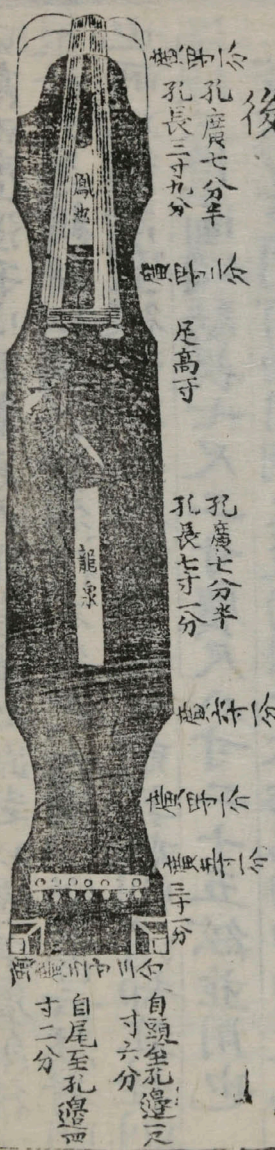 後
廣四寸一分
孔廣七分半
孔長三寸九分
鳳池
廣四寸二分
足高寸
孔廣七分半
孔長七寸一分
龍泉
廣六寸一分
廣四寸一分
廣五寸一分
三寸一分
頭廣三寸三分
自頭至孔邊一尺
一寸六分
自尾至孔邊四
寸二分